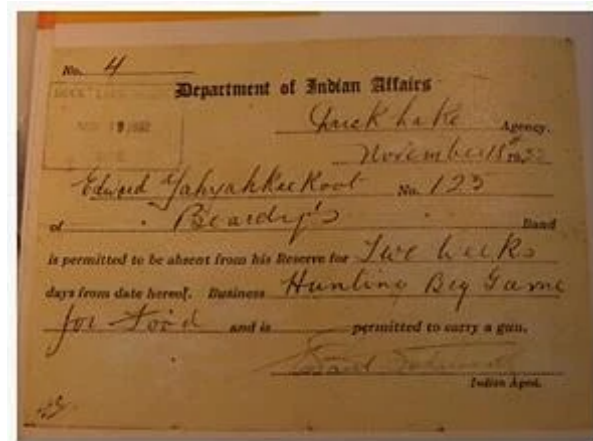 No. 4
Department of Indian Affairs
Duck Lake Agency.
November 18th 1932
Edward Yahyahkeekoot No. 123
of Beardy's Band
is permitted to be absent from his Reserve for Two Weeks
days from date hereof. Business Hunting Big Game
for Food and is permitted to carry a gun.
Indian Agent.